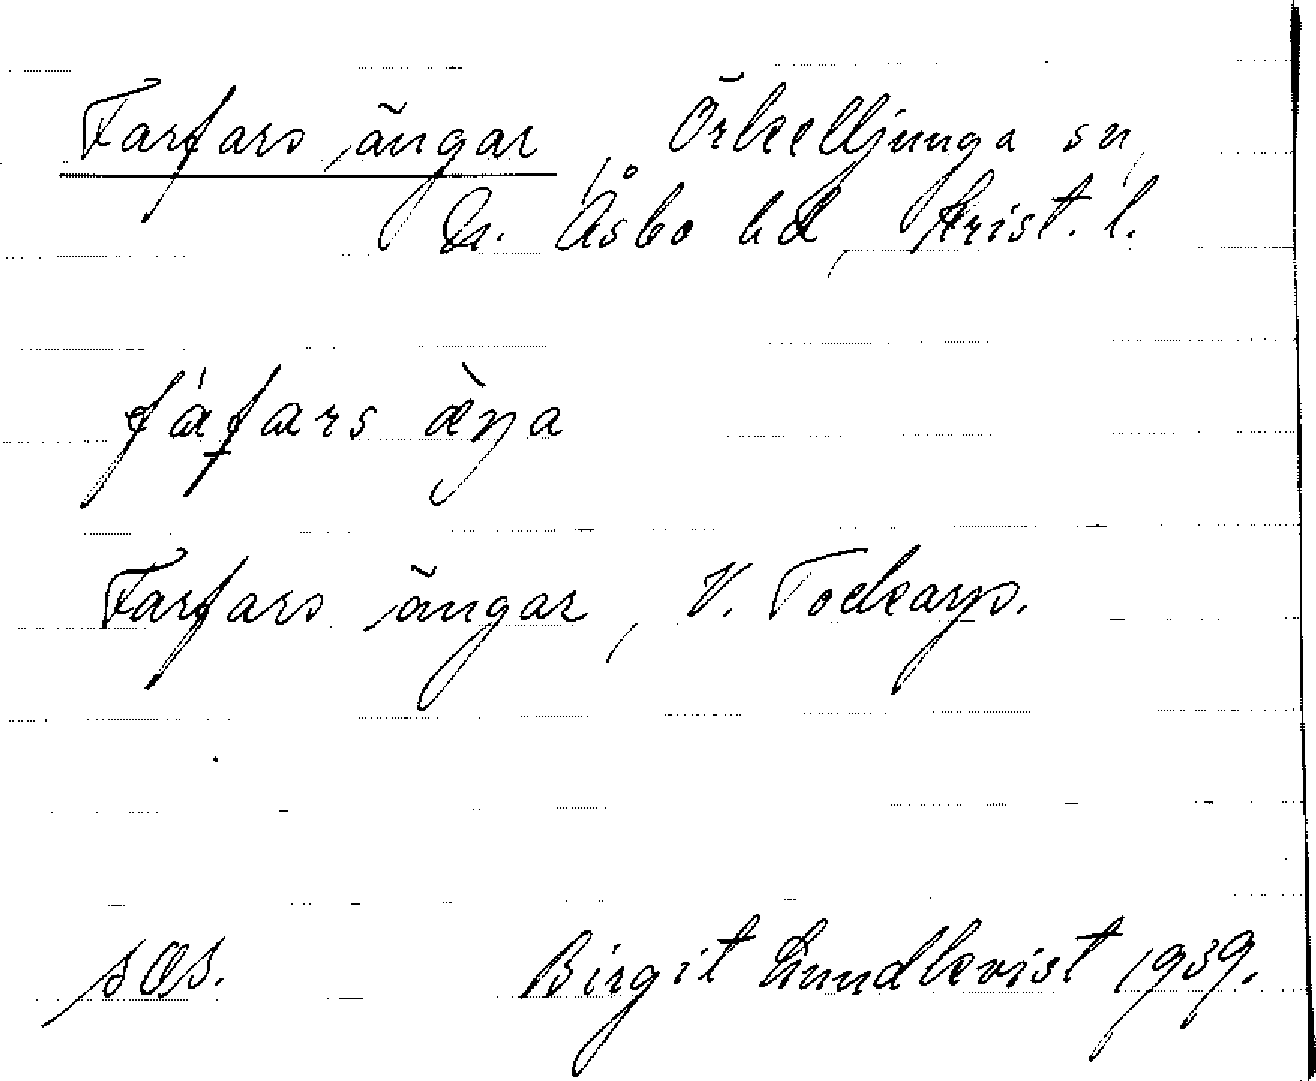 Farfars ängar, Örkelljunga sn,
N. Åsbo hd, Krist. l.
fáfars æ̀ŋa
Farfars ängar, V. Tockarp.
sæs. Birgit Lundkvist 1939.